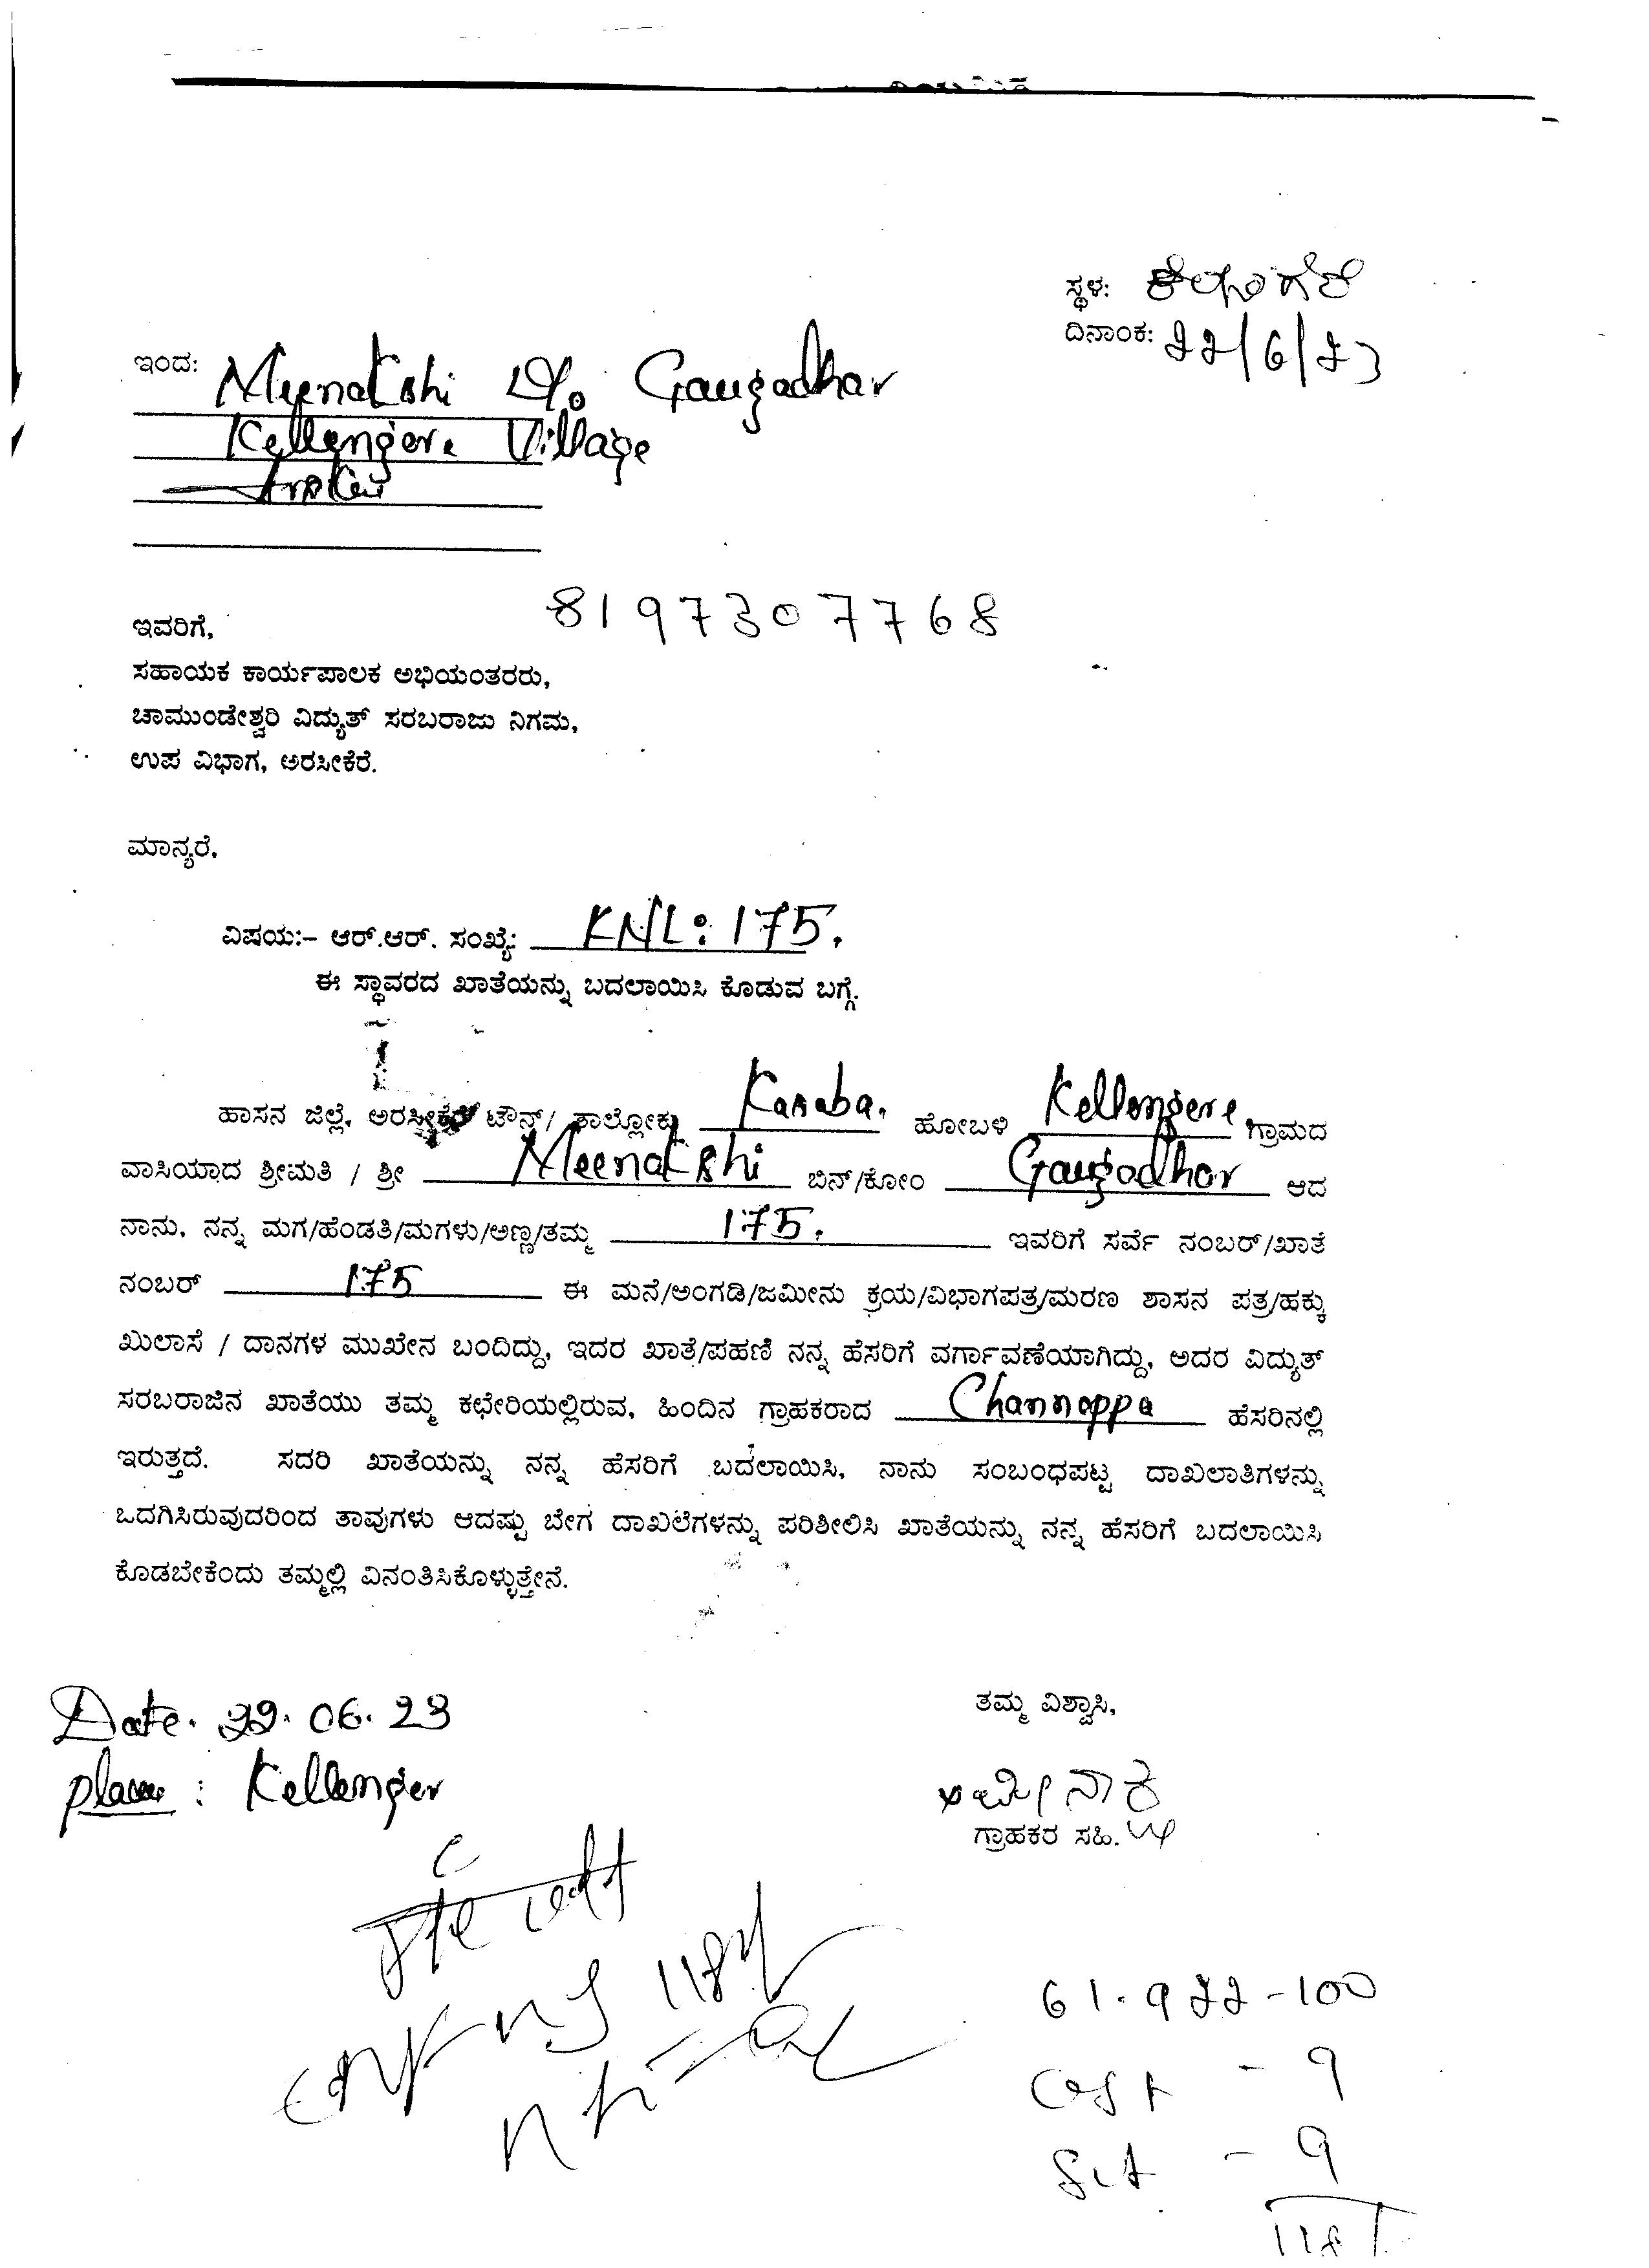 ಸ್ಥಳ: ಕೆಲ್ಲಂಗೆರೆ
ದಿನಾಂಕ: 22/6/23
ಇಂದ: Meenakshi Gangadhar
Kellengere Village
8197307768
ಇವರಿಗೆ,
ಸಹಾಯಕ ಕಾರ್ಯಪಾಲಕ ಅಭಿಯಂತರರು,
ಚಾಮುಂಡೇಶ್ವರಿ ವಿದ್ಯುತ್ ಸರಬರಾಜು ನಿಗಮ,
ಉಪ ವಿಭಾಗ, ಅರಸೀಕೆರೆ.
ಮಾನ್ಯರೆ,
ವಿಷಯ:- ಆರ್.ಆರ್. ಸಂಖ್ಯೆ: KNL: 175.
ಈ ಸ್ಥಾವರದ ಖಾತೆಯನ್ನು ಬದಲಾಯಿಸಿ ಕೊಡುವ ಬಗ್ಗೆ.
ಹಾಸನ ಜಿಲ್ಲೆ, ಅರಸೀಕೆರೆ ಟೌನ್/ ತಾಲ್ಲೋಕು Kasaba. ಹೋಬಳಿ Kellengere ಗ್ರಾಮದ
ವಾಸಿಯಾದ ಶ್ರೀಮತಿ / ಶ್ರೀ Meenakshi ಬಿನ್/ಕೋಂ Gangadhar ಆದ
ನಾನು, ನನ್ನ ಮಗ/ಹೆಂಡತಿ/ಮಗಳು/ಅಣ್ಣ/ತಮ್ಮ 175. ಇವರಿಗೆ ಸರ್ವೆ ನಂಬರ್/ಖಾತೆ
ನಂಬರ್ 175 ಈ ಮನೆ/ಅಂಗಡಿ/ಜಮೀನು ಕ್ರಯ/ವಿಭಾಗಪತ್ರ/ಮರಣ ಶಾಸನ ಪತ್ರ/ಹಕ್ಕು
ಖುಲಾಸೆ / ದಾನಗಳ ಮುಖೇನ ಬಂದಿದ್ದು, ಇದರ ಖಾತೆ/ಪಹಣಿ ನನ್ನ ಹೆಸರಿಗೆ ವರ್ಗಾವಣೆಯಾಗಿದ್ದು, ಅದರ ವಿದ್ಯುತ್
ಸರಬರಾಜಿನ ಖಾತೆಯು ತಮ್ಮ ಕಛೇರಿಯಲ್ಲಿರುವ, ಹಿಂದಿನ ಗ್ರಾಹಕರಾದ Channappa ಹೆಸರಿನಲ್ಲಿ
ಇರುತ್ತದೆ. ಸದರಿ ಖಾತೆಯನ್ನು ನನ್ನ ಹೆಸರಿಗೆ ಬದಲಾಯಿಸಿ, ನಾನು ಸಂಬಂಧಪಟ್ಟ ದಾಖಲಾತಿಗಳನ್ನು
ಒದಗಿಸಿರುವುದರಿಂದ ತಾವುಗಳು ಆದಷ್ಟು ಬೇಗ ದಾಖಲೆಗಳನ್ನು ಪರಿಶೀಲಿಸಿ ಖಾತೆಯನ್ನು ನನ್ನ ಹೆಸರಿಗೆ ಬದಲಾಯಿಸಿ
ಕೊಡಬೇಕೆಂದು ತಮ್ಮಲ್ಲಿ ವಿನಂತಿಸಿಕೊಳ್ಳುತ್ತೇನೆ.
ತಮ್ಮ ವಿಶ್ವಾಸಿ,
Date. 22.06.23
place : Kellenger
ಮೀನಾಕ್ಷಿ
ಗ್ರಾಹಕರ ಸಹಿ.
61.922-100
CGST - 9
SGST - 9
118